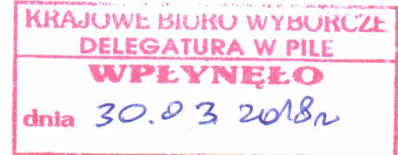 KRAJOWE BIURO WYBORCZE
DELEGATURA W PILE
WPŁYNĘŁO
dnia 30.03 2018r